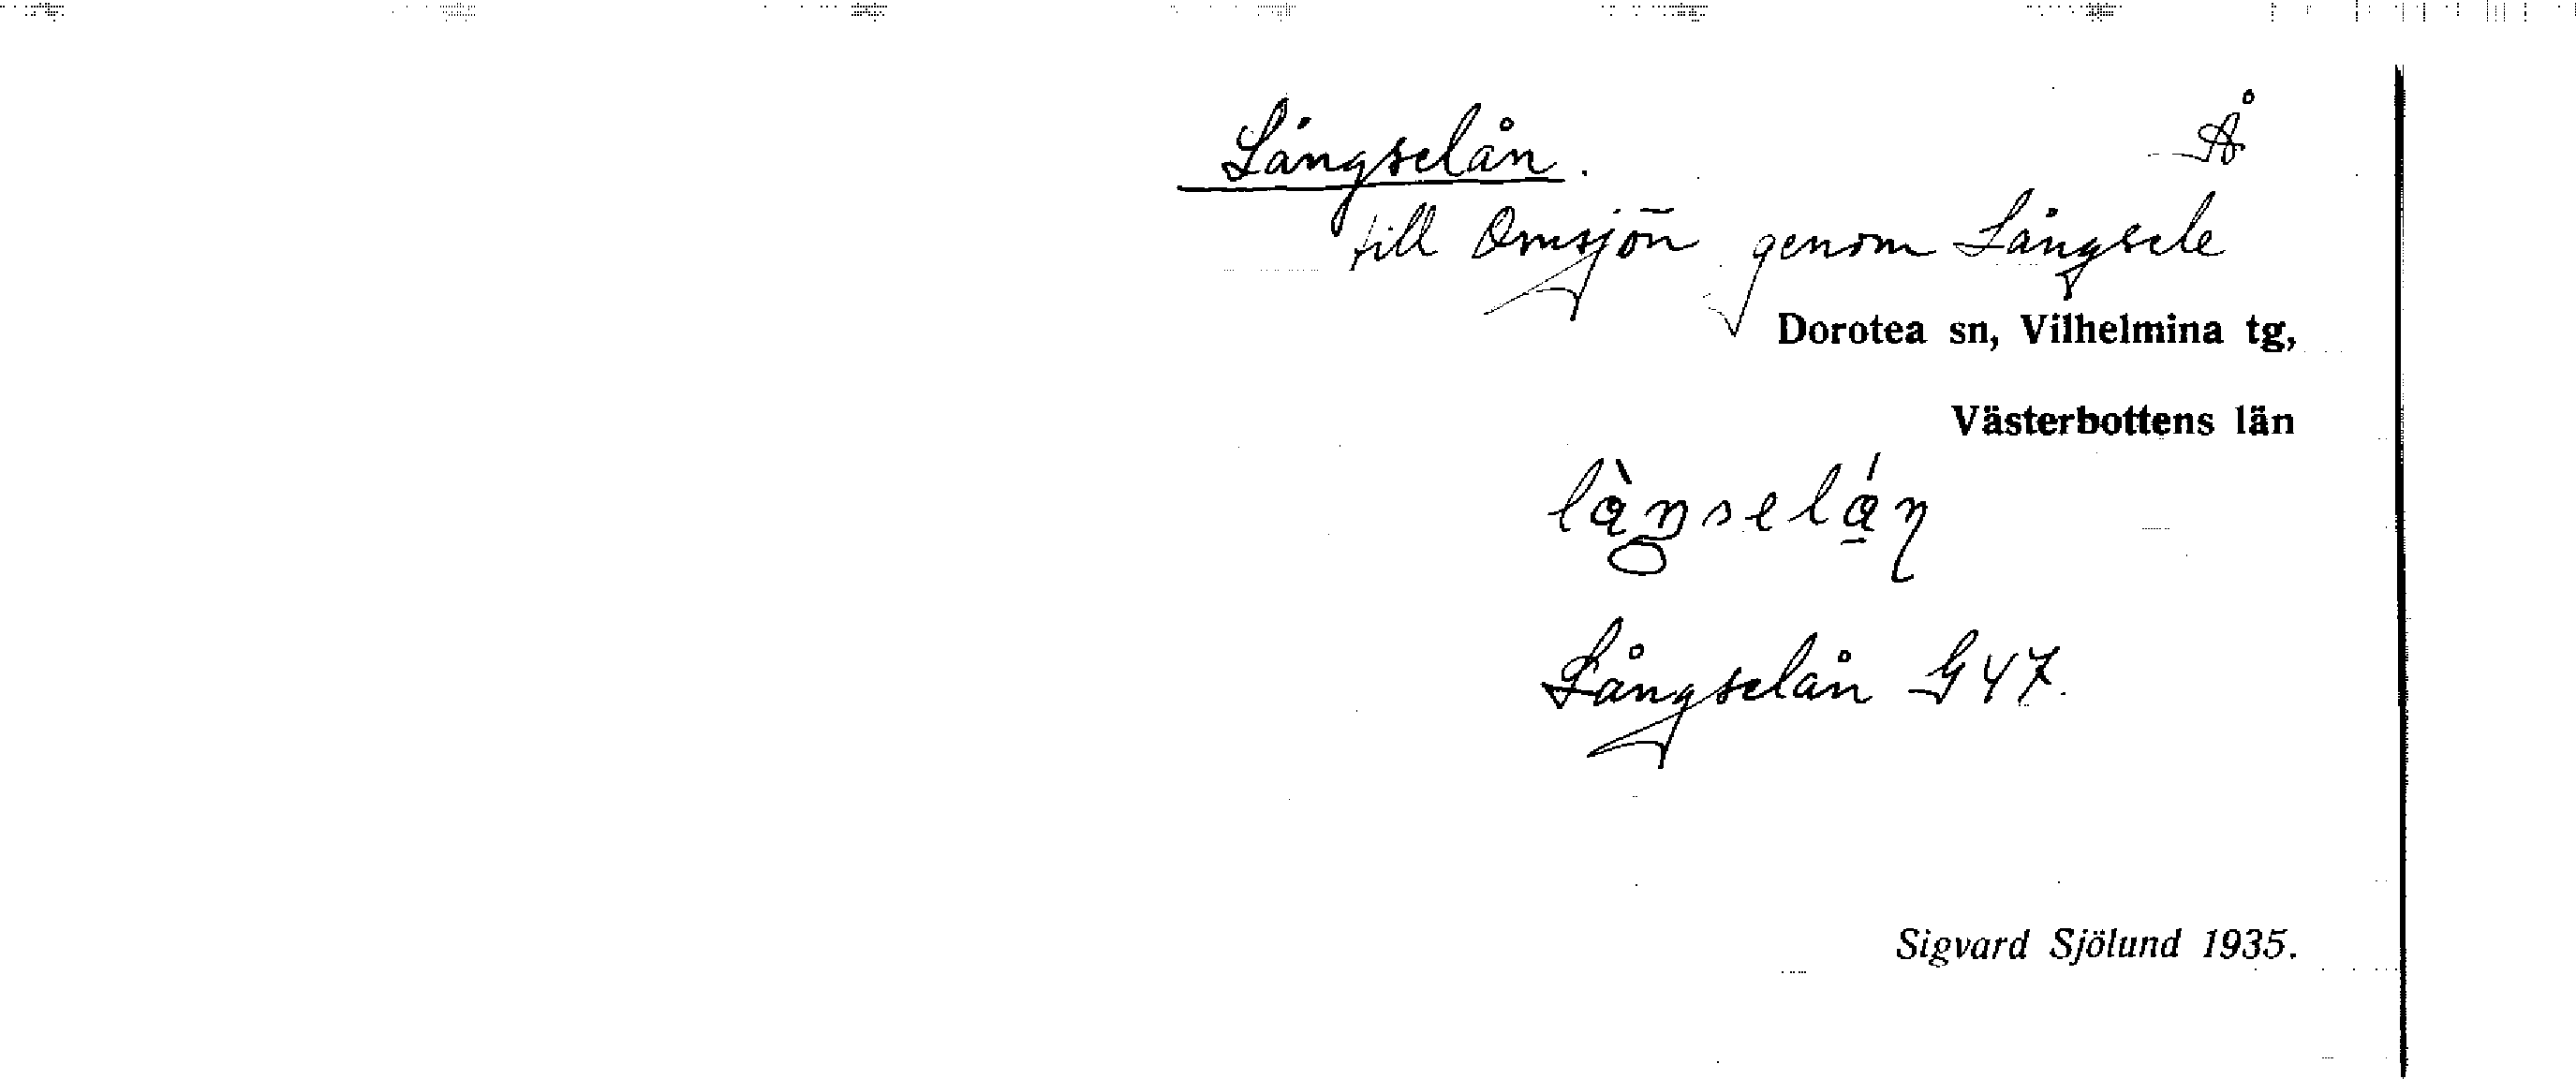 Långselån. Å
till Ormsjön genom Långsele
Dorotea sn, Vilhelmina tg,
Västerbottens län
Långselån G 47.
Sigvard Sjölund 1935.